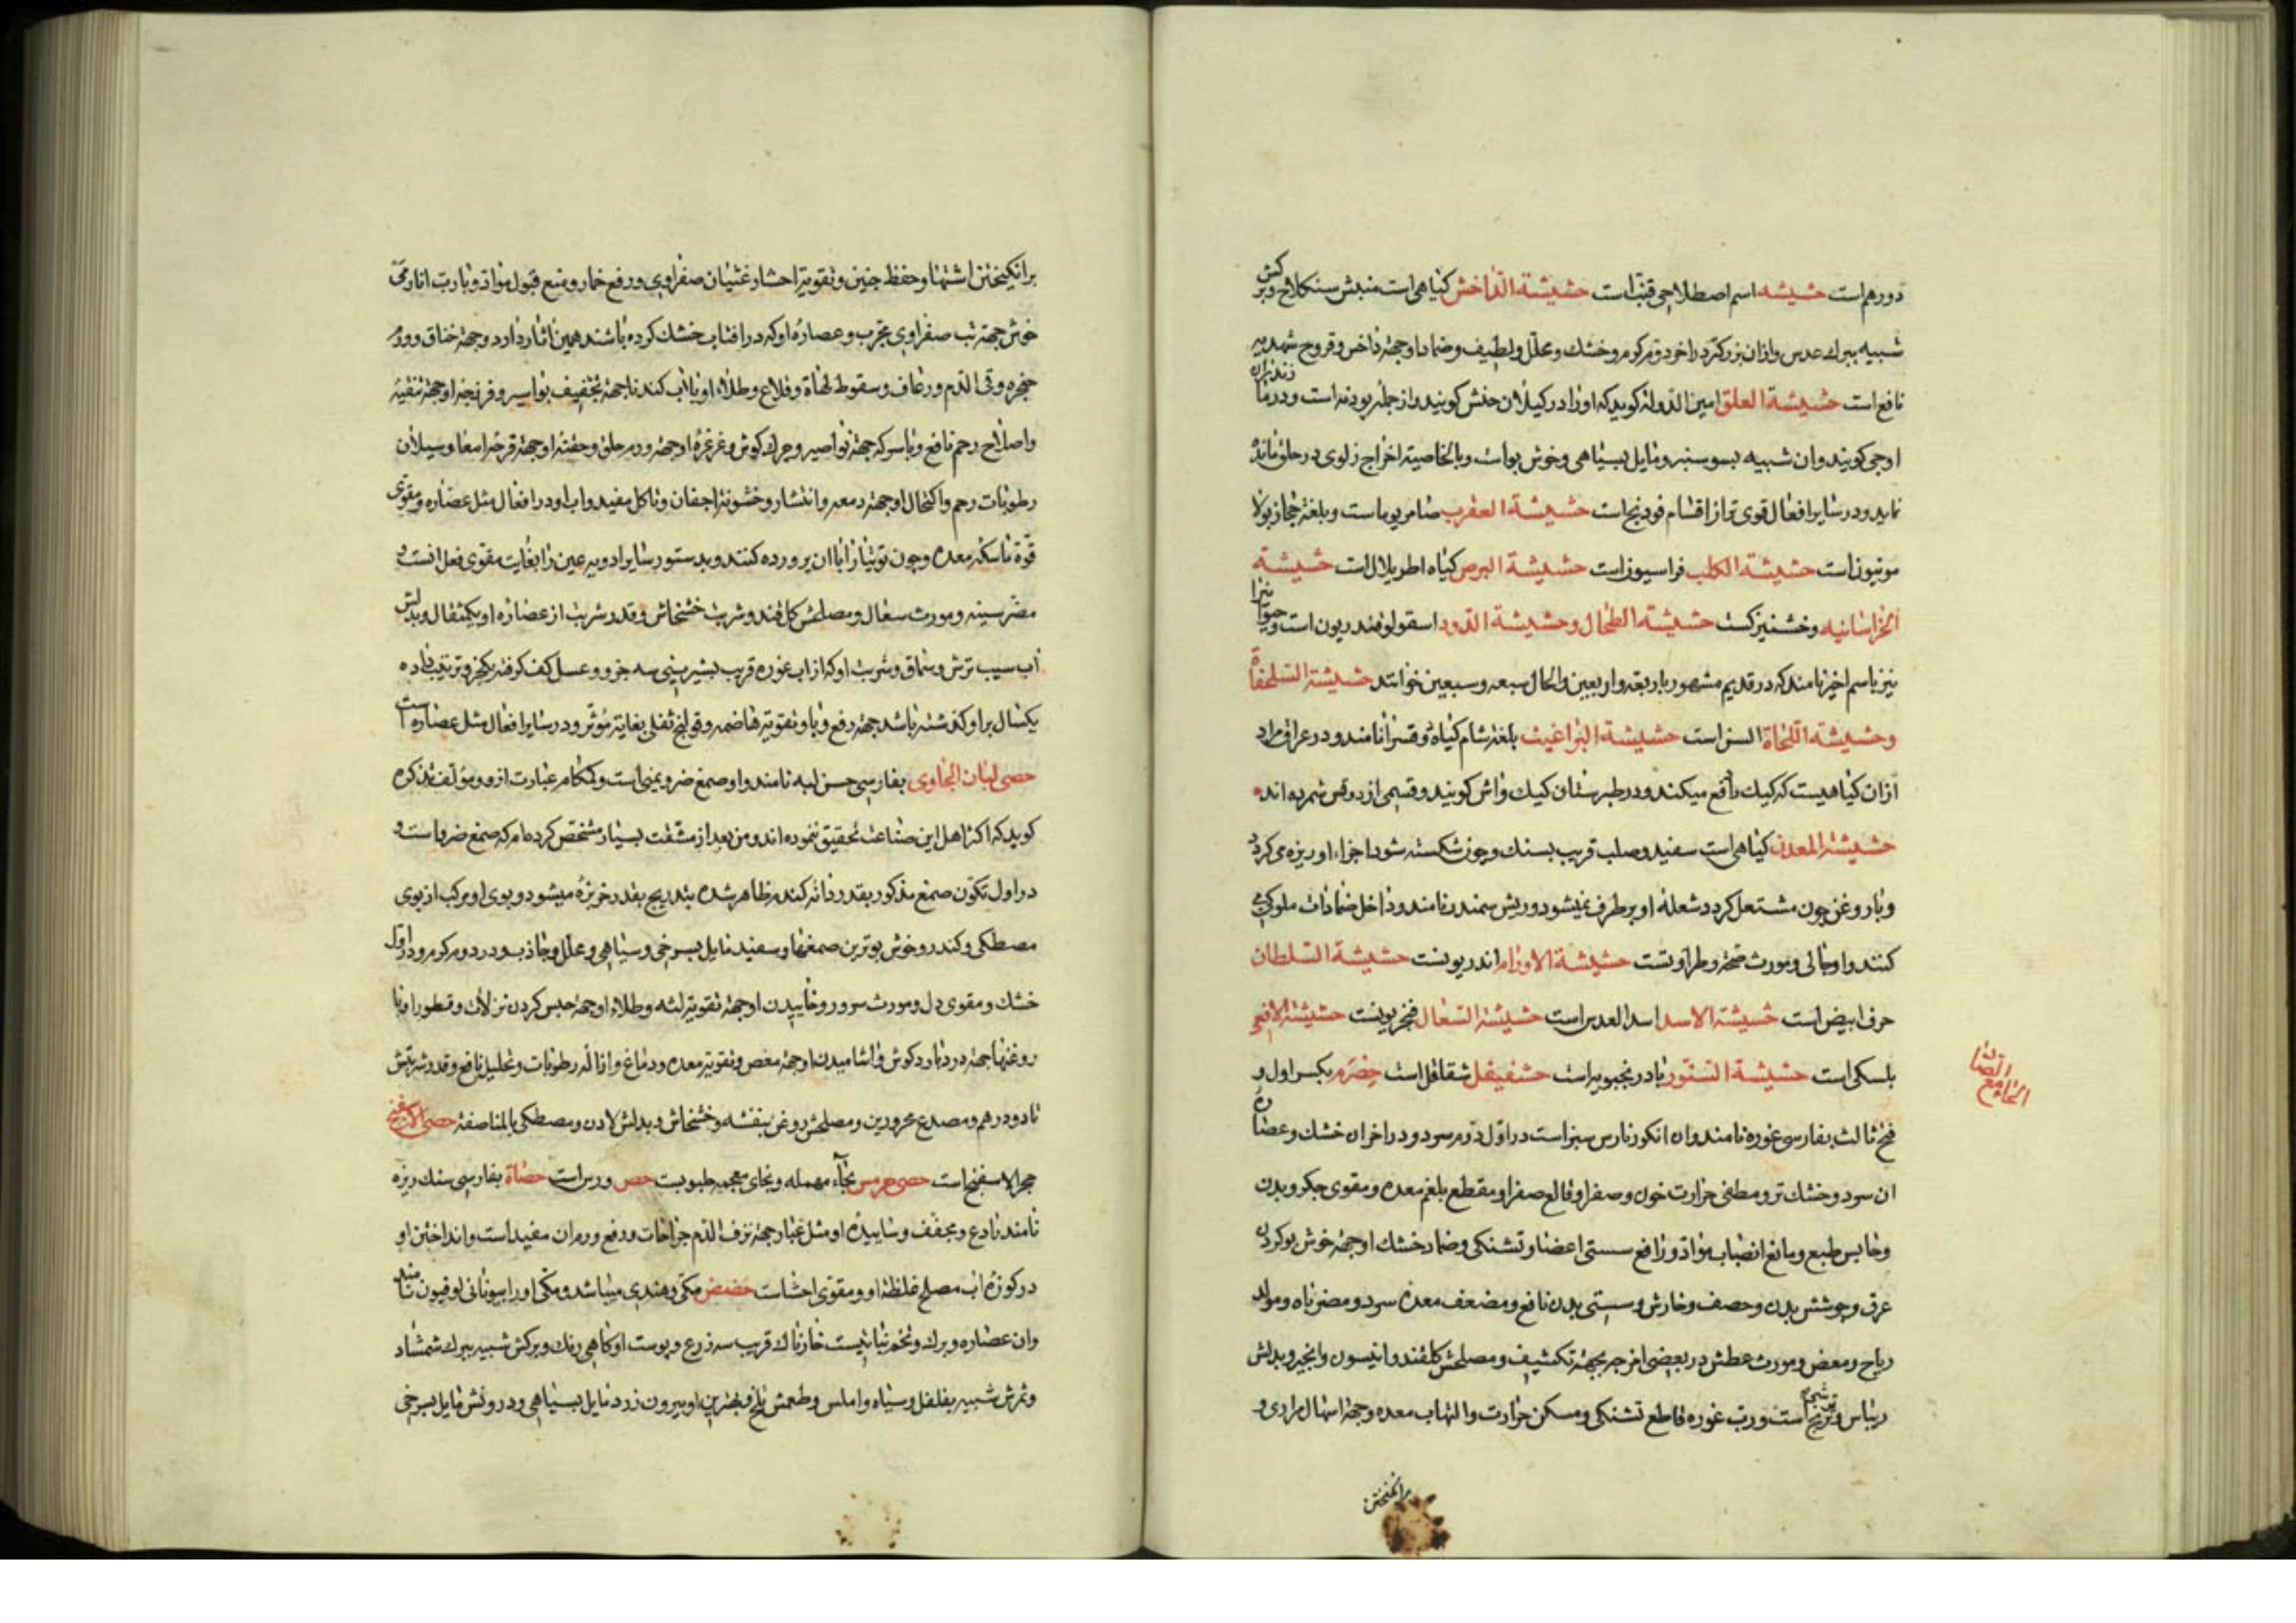 دو درهم است حشیشه اسم اصطلاحی قنب است حشیشة الداخس کیاهی است منبتش سنکلاخ و برکش
شبیه ببرك عدس و ازان بزرکتر در اخر دوم کرم و خشك و محلل و لطیف و ضماد او جهة داخس و قروح شهدیه
نافع است حشیشة العلق امین الدوله کوید که او را در کیلان خنش کویند و از جمله پودنه است و در مازندران
اوجی کویند و ان شبیه بسوسنبر و مایل بسیاهی و خوش بو است و بالخاصیة اخراج زلوی در حلق مانده
نماید و در سایر افعال قوی تر از اقسام فودنج است حشیشة العقرب صامریوما است و بلغة حجاز بولا
مونیون است حشیشة الکلب فراسیون است حشیشة البرص کیاه اطریلال است حشیشة
الخراسانیه وخشنیزکست حشیشة الطحال و حشیشة الدود اسقولوفندریون است و حیوا نیرا
نیز باسم اخیر نامند که در قدیم مشهور باربعه و اربعین و الحال سبعه و سبعین خوانند حشیشة السلحفاة
و حشیشة اللجاة السن است حشیشة البراغیث بلغة شام کیاه و قسرانا نامند و در عراق مراد
ازان کیاهیست که کیك را دفع میکند و در طبرستان کیك واش کویند و قسمی از دوقس شمرده اند
حشیشة المعدن کیاهی است سفید و صلب قریب بسنك و چون شکسته شود اجزاء او ریزه می کردد
و با روغن چون مشتعل کردد شعله او برطرف نمیشود و ریش سمندر نامند و داخل ضمادات ملوکی می
کنند و او جالی و مورث صحة و طراوتست حشیشة الاورام اندریونست حشیشة السلطان
حرف ابیض است حشیشة الاسد اسد العدس است حشیشة السعال فنجریونست حشیشة الافعی
بلسکی است حشیشة السنور بادرنجبویه است حشفیفل شقاقل است حصرم بکسر اول و
الحاء مع الصاد
فتح ثالث بفارسی غوره نامند و ان انکور نارس سبز است در اول دوم سرد و در اخر ان خشك و عصاره
ان سرد و خشك تر و مطفی حرارت خون و صفرا و قالع صفرا و مقطع بلغم معده و مقوی جکر و بدن
و حابس طبع و مانع انصباب مواد و رافع سستی اعضا و تشنکی و ضماد خشك او جهة خوش بو کردن
عرق و جوشش بدن و حصف و خارش و سستی بدن نافع و مضعف معده سرد و مضر باه و مولد
ریاح و مغص و مورث عطش در بعضی امزجه بجهة تکثیف و مصلحش کلقند و انیسون و انجیر و بدلش
ریباس و ترنج است و رب غوره قاطع تشنکی و مسکن حرارت و التهاب معده و جهة اسهال مراری و
برانکیختن
برانکیختن اشتها و حفظ جنین و تقویة احشا و غثیان صفراوی و رفع خمار و منع قبول مواد و با رب انار می
خوش جهة تب صفراوی مجرب و عصاره او که در افتاب خشك کرده باشند همین اثار دارد و جهة خناق و ورم
حنجره و قی الدم و رعاف و سقوط لهاة و قلاع و طلاء او با آب کندنا جهة تجفیف بواسیر و فرزجه او جهة تنقیه
و اصلاح رحم نافع و با سرکه جهة نواصیر و چرك کوش و غرغره او جهة ورم حلق و حقنه او جهة قرحه امعا و سیلان
رطوبات رحم و اکتحال او جهة دمعه و انتشار و خشونة اجفان و تاکل مفید و اب او در افعال مثل عصاره و مقوی
قوة ماسکه معده و چون توتیا را با ان پرورده کنند و بدستور سایر ادویه عین را بغایت مقوی فعل انست و
مضر سینه و مورث سعال و مصلحش کلقند و شربت خشخاش و قدر شربت از عصاره او یکمثقال و بدلش
اب سیب ترش و سماق و شربت او که از اب غوره قریب بشیرینی سه جزو و عسل کف کرفته یکجزو ترتیب داده
یکسال بر او کذشته باشد جهة رفع وبا و تقویة هاضمه و قولنج ثفلی بغایة مؤثر و در سایر افعال مثل عصاره است
حصی لبان الجاوی بفارسی حسن لبه نامند و او صمغ ضرو یمنی است و کمکام عبارت ازو و مؤلف تذکره
کوید که اکثر اهل این صناعت تحقیق ننموده اند و من بعد از مشقت بسیار مشخص کرده ام که صمغ ضرو است و
در اول تکون صمغ مذکور بقدر دانه کندر ظاهر شده بتدریج بقدر خربزه میشود و بوی او مرکب از بوی
مصطکی و کندر و خوش بوترین صمغها و سفید مایل بسرخی و سیاهی و محلل و جاذب و در دوم کرم و در اول
خشك و مقوی دل و مورث سرور و خاییدن او جهة تقویة لثه و طلاء او جهة حبس کردن نزلات و قطور او با
روغنها جهة درد بارد کوش و اشامیدن او جهة مغص و تقویة معده و دماغ و ازاله رطوبات و تحلیل نافع و قدر شربتش
تا دو درهم و مصدع محرورین و مصلحش روغن بنفشه و خشخاش و بدلش لادن و مصطکی بالمناصفة حصی الاسفنج
حجر الاسفنج است حصی هرمس بحاء مهمله و بخای معجمه حلبوبست حص ورس است حصاة بفارسی سنك ریزه
نامند رادع و مجفف و ساییده او مثل غبار جهة نزف الدم جراحات و رفع ورم ان مفید است و انداختن او
در کوزه اب مصلح غلظة او و مقوی احشا است حضض مکی و هندی میباشد و مکی او را بیونانی لوفیون نامند
و ان عصاره و برك و تخم نباتیست خارناك قریب سه ذرع و پوست او کاهی رنك و برکش شبیه ببرك شمشاد
و ثمرش شبیه بفلفل و سیاه و املس و طعمش تلخ و بهترین او بیرون زرد مایل بسیاهی و درونش مایل بسرخی